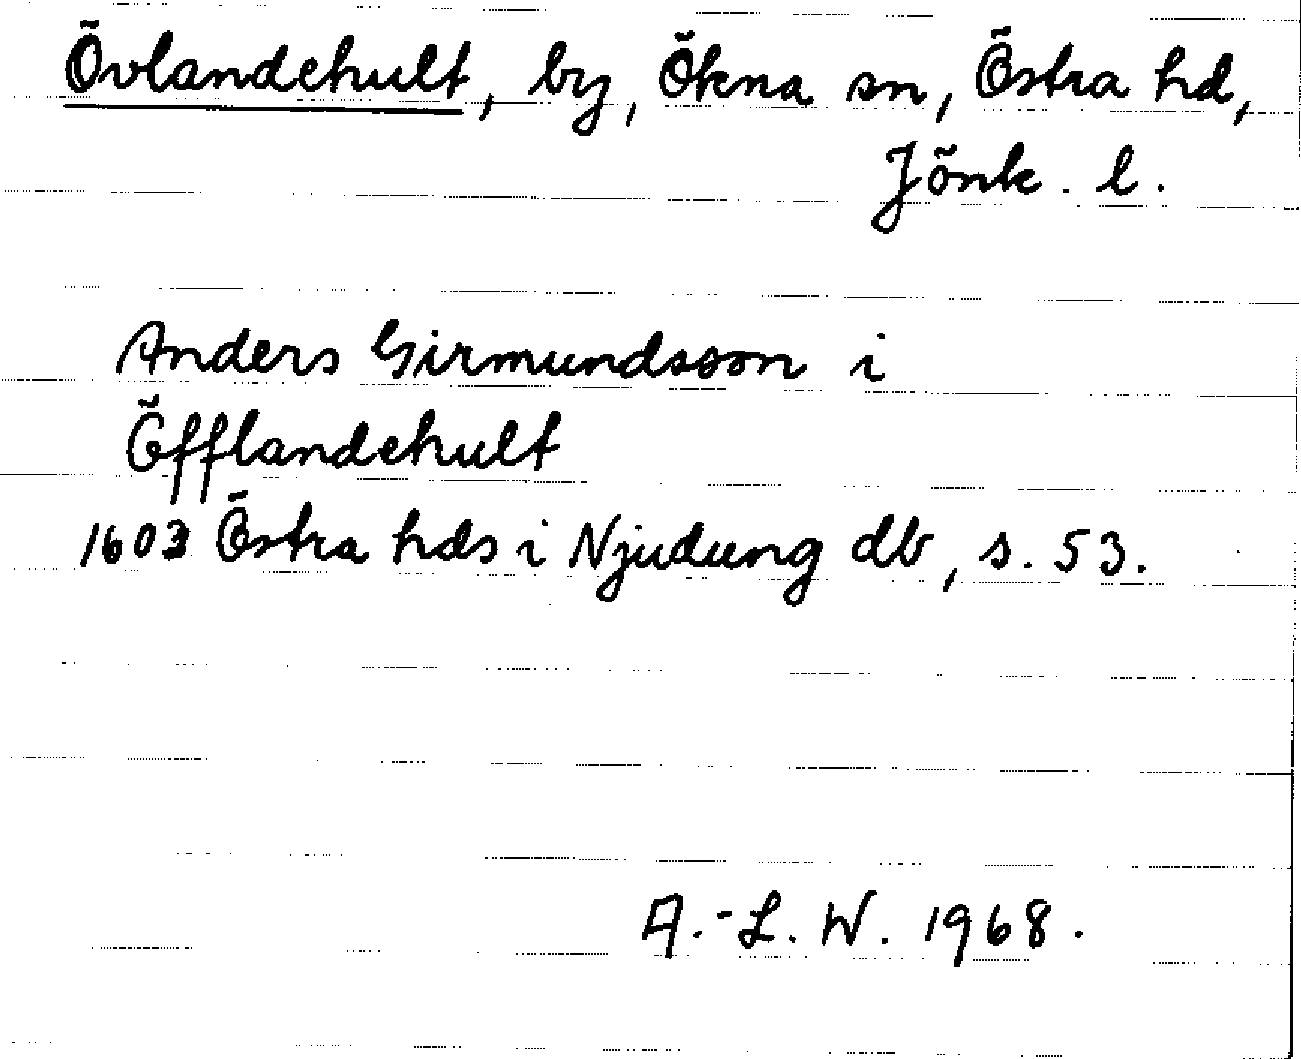 Övlandehult, by, Ökna sn, Östra hd,
Jönk. l.
Anders Girmundsson i
Öfflandehult
1603 Östra hds i Njudung db, s. 53.
A.-L. W. 1968.